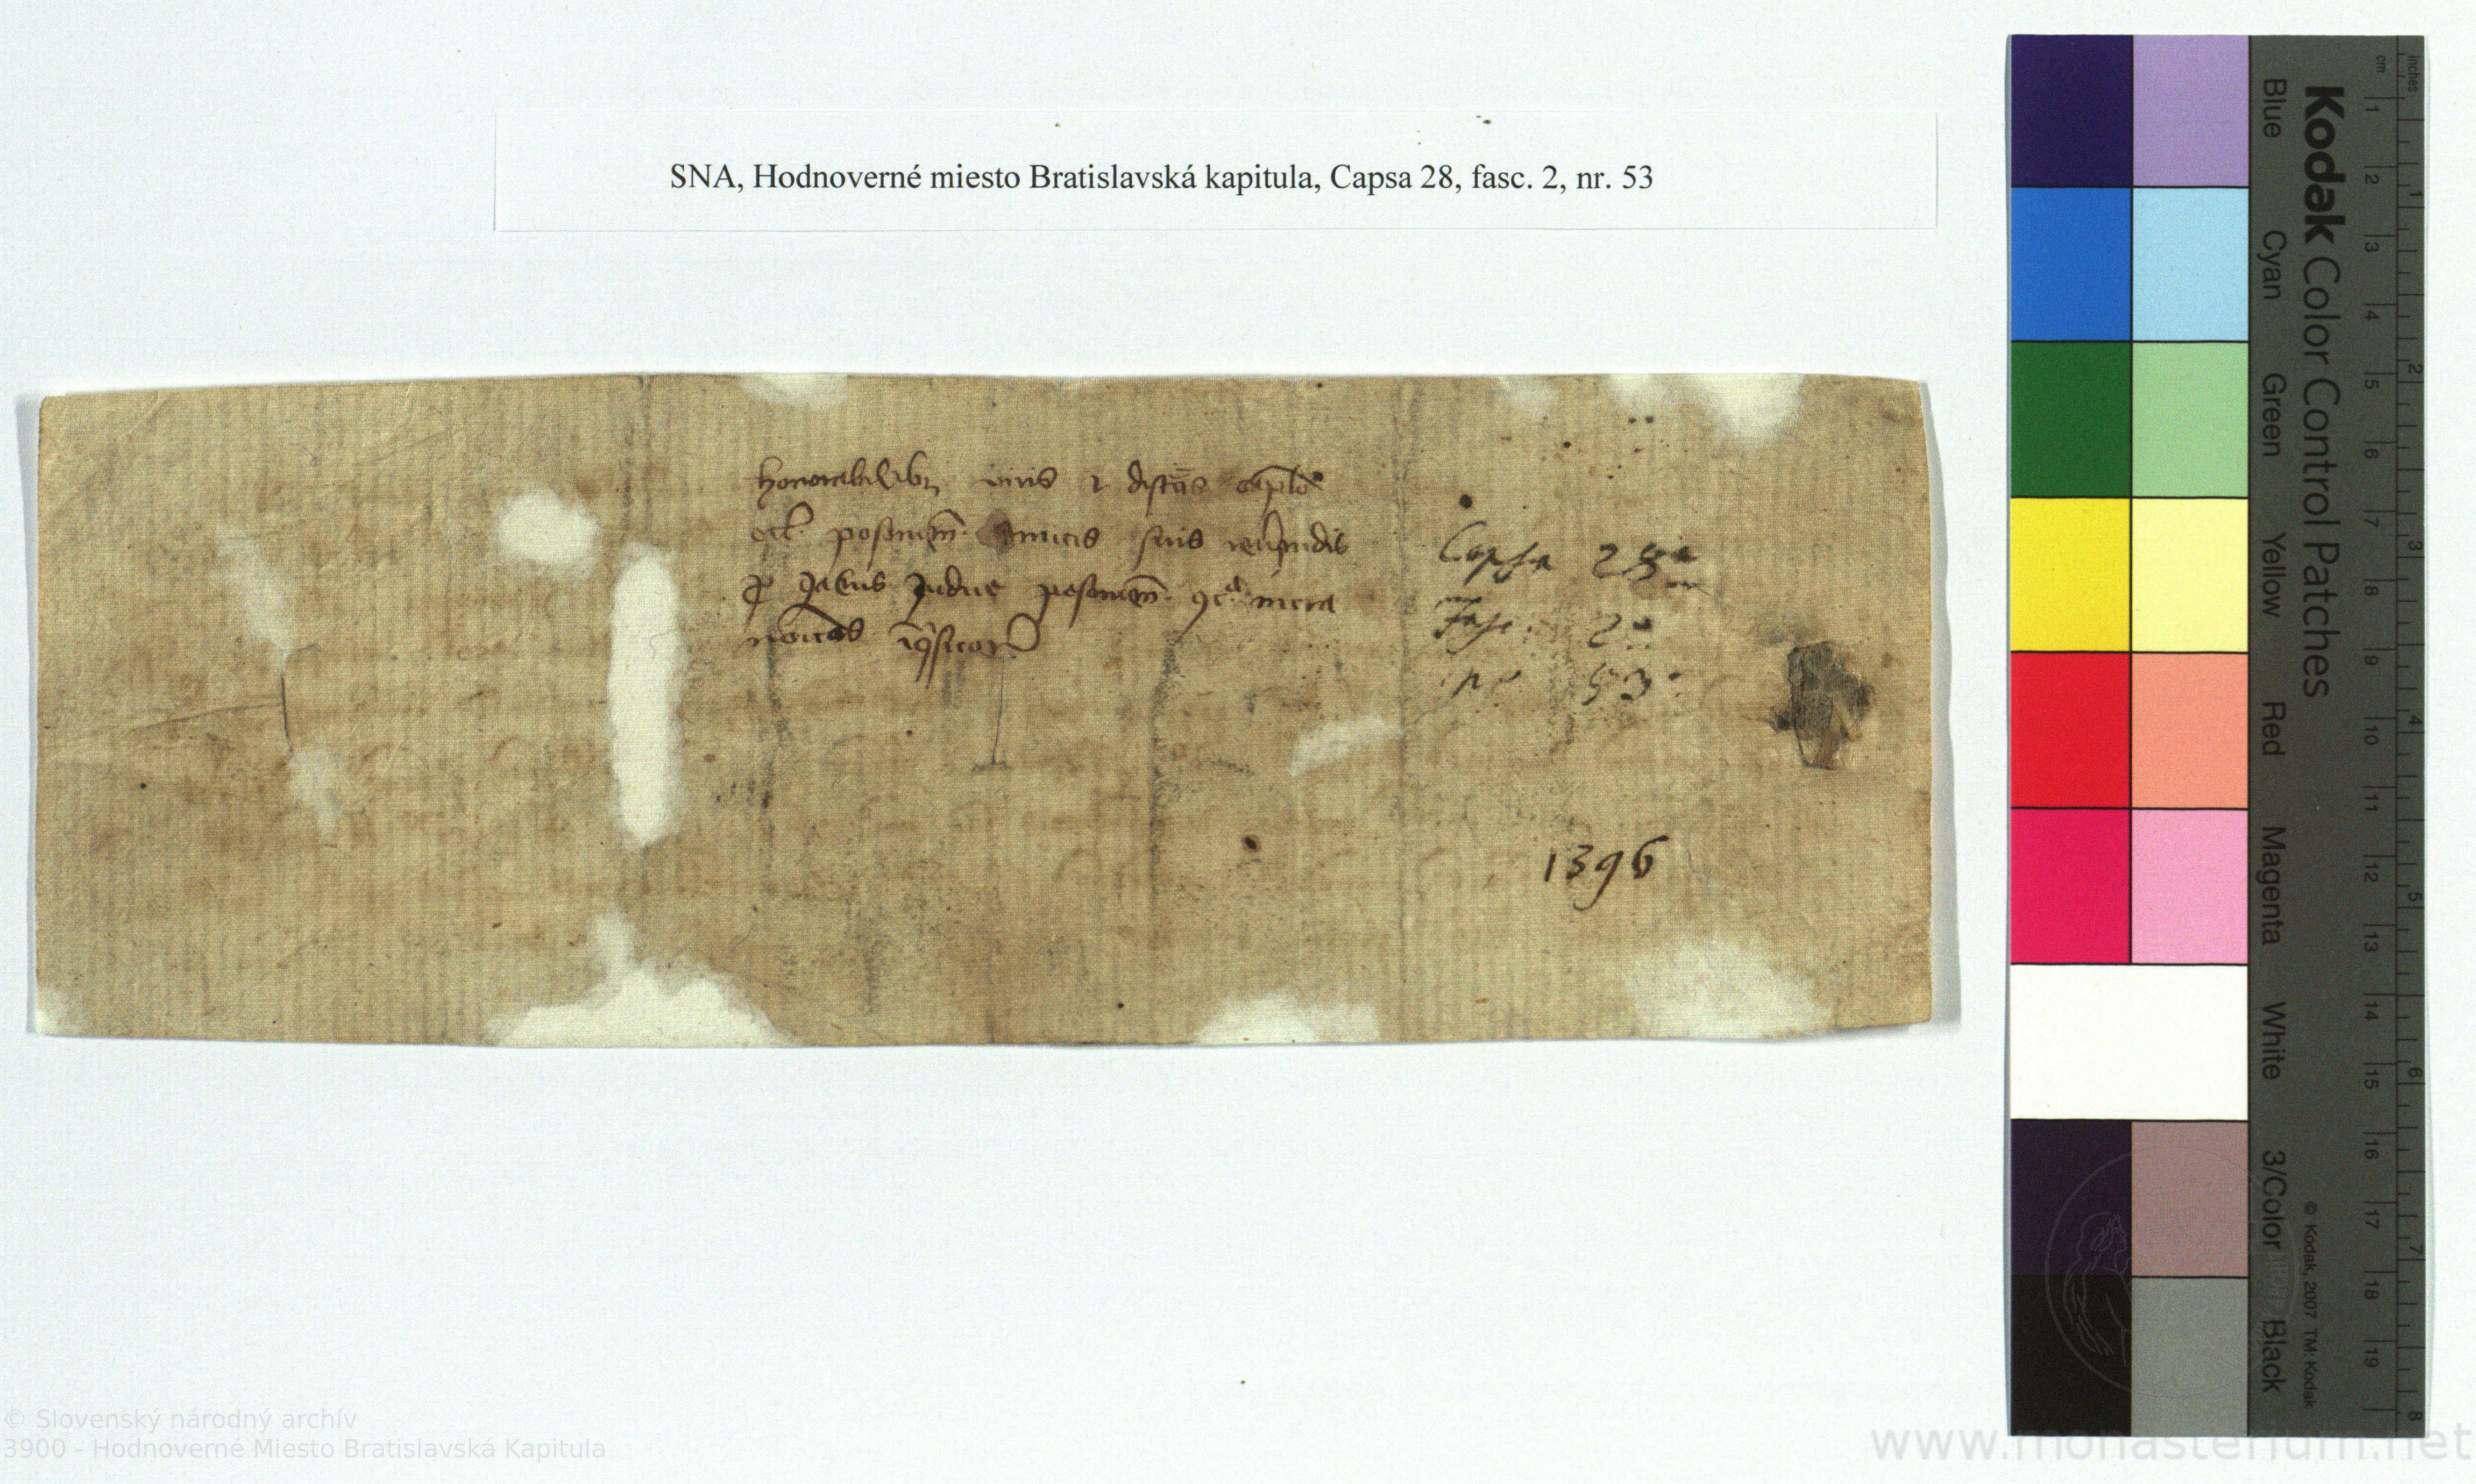 SNA, Hodnoverné miesto Bratislavská kapitula, Capsa 28, fasc. 2, nr. 53
honorabilibus viris et discretis caplo
eccl posonien amicis suis reverendis
Judice posonien
Capsa 28
Fasc. 2
nr 53
1396
Kodak Color Control Patches
Blue Cyan Green Yellow Red Magenta White 3/Color Black
© Kodak, 2007 TM: Kodak
inches 1 2 3 4 5 6 7 8
cm 1 2 3 4 5 6 7 8 9 10 11 12 13 14 15 16 17 18 19
© Slovenský národný archív
3900 - Hodnoverné Miesto Bratislavská Kapitula
www.monasterium.net